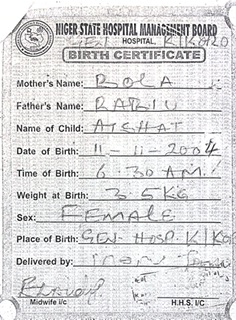 NIGER STATE HOSPITAL MANAGEMENT BOARD
GEN HOSPITAL, KIKOZO
BIRTH CERTIFICATE
Mother's Name: BOLA
Father's Name: RABIU
Name of Child: AISHAT
Date of Birth: 11-11-2004
Time of Birth: 6.30AM.
Weight at Birth: 35KG
Sex: FEMALE
Place of Birth: GEN. HOSP. KIKO
Delivered by:
Midwife i/c H.H.S. I/C